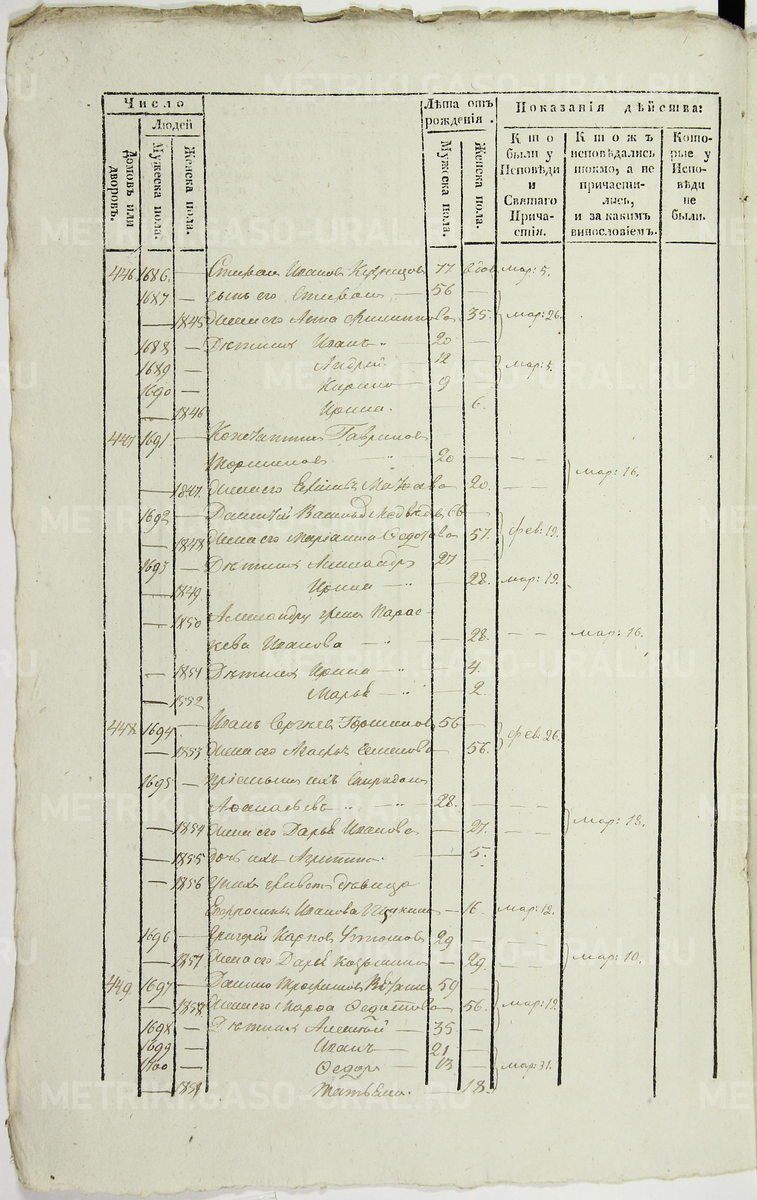 Число
Людей
Домовъ или дворовъ.
Мужеска пола.
Женска пола.
Лѣта отъ рожденія.
Мужеска пола.
Женска пола.
Показанія дѣйства:
Кто были у Исповѣди и Святаго Причастія.
Ктожъ исповѣдались токмо, а не причастились, и за какимъ винословіемъ.
Которые у Исповѣди не были.
446 1686 — Степанъ Ивановъ Кузнецовъ 77 вдов мар: 5.
1687 — сынъ его Степанъ — 56 —
— 1845 Жена его Анна Филиппова 35. мар: 26.
1688 — Дѣти ихъ Иванъ 20 —
1689 — Андрей 12 — мар: 5.
1690 — 9 —
— 1846 Ирина. — 6.
447 1691 — Константинъ Гавриловъ
20 — — — мар: 16.
— 1847 Жена его — 20. — —
1692 — Василь 66 —
— 1848 Жена его Маріанна Федотова 57. фев: 19.
1693 — Дѣти ихъ Александръ 27 —
— 1849 Ирина — 28. мар: 19.
— 1850 Александру жена Парас-
кева Иванова — 28. — — мар: 16.
— 1851 Дѣти ихъ Ирина — 4.
— 1852 Марья — 2
448 1694 — Иванъ Сергѣевъ 56 —
— 1853 Жена его Агафья Семенова 56. фев: 26.
1695 — пріемышъ ихъ Спиридонъ
28. — — —
— 1854 Жена его Дарья Иванова — 27. — — мар: 13.
— 1855 дочь ихъ — 5.
— 1856 у нихъ живетъ дѣвица
Иванова — 16. мар: 12.
1696 — Григорій Карповъ 29 — — —
— 1857 Жена его Дарья Козьмина — 29. — — мар: 10.
449 1697 — Данило Трофимовъ 59 —
— 1858 Жена его Марѳа — 56. мар: 19.
1698 — Дѣти ихъ Алексѣй — 35 —
1699 Иванъ — 21 —
1700 Ѳедоръ — 13 — мар: 31.
— 1859 Татьяна. — 18.
METRIKI.GASO-URAL.RU